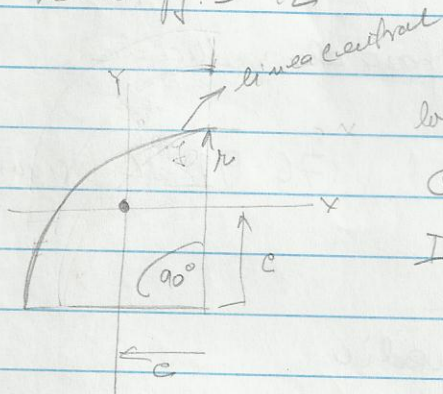 Y
linea central
r
lo
X
C
I
90°
C
C